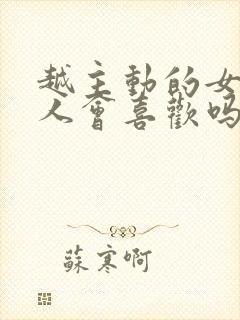 越主動的女
人會喜歡嗎
蘇寒啊